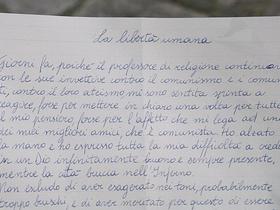 La libertà umana
Giorni fa, poiché il professore di religione continuava
con le sue invettive contro il comunismo e i comuni
ti, contro il loro ateismo, mi sono sentita spinta a
reagire, forse per mettere in chiaro una volta per tutte
il mio pensiero, forse per l'affetto che mi lega ad uno
dei miei migliori amici, che è comunista. Ho alzato
la mano e ho espresso tutta la mia difficoltà a cred
in un Dio infinitamente buono e sempre presente,
mentre la vita brucia nell'Inferno.
Non escludo di aver esagerato nei toni, probabilmente
troppo bruschi, e di aver meritato per questo di essere